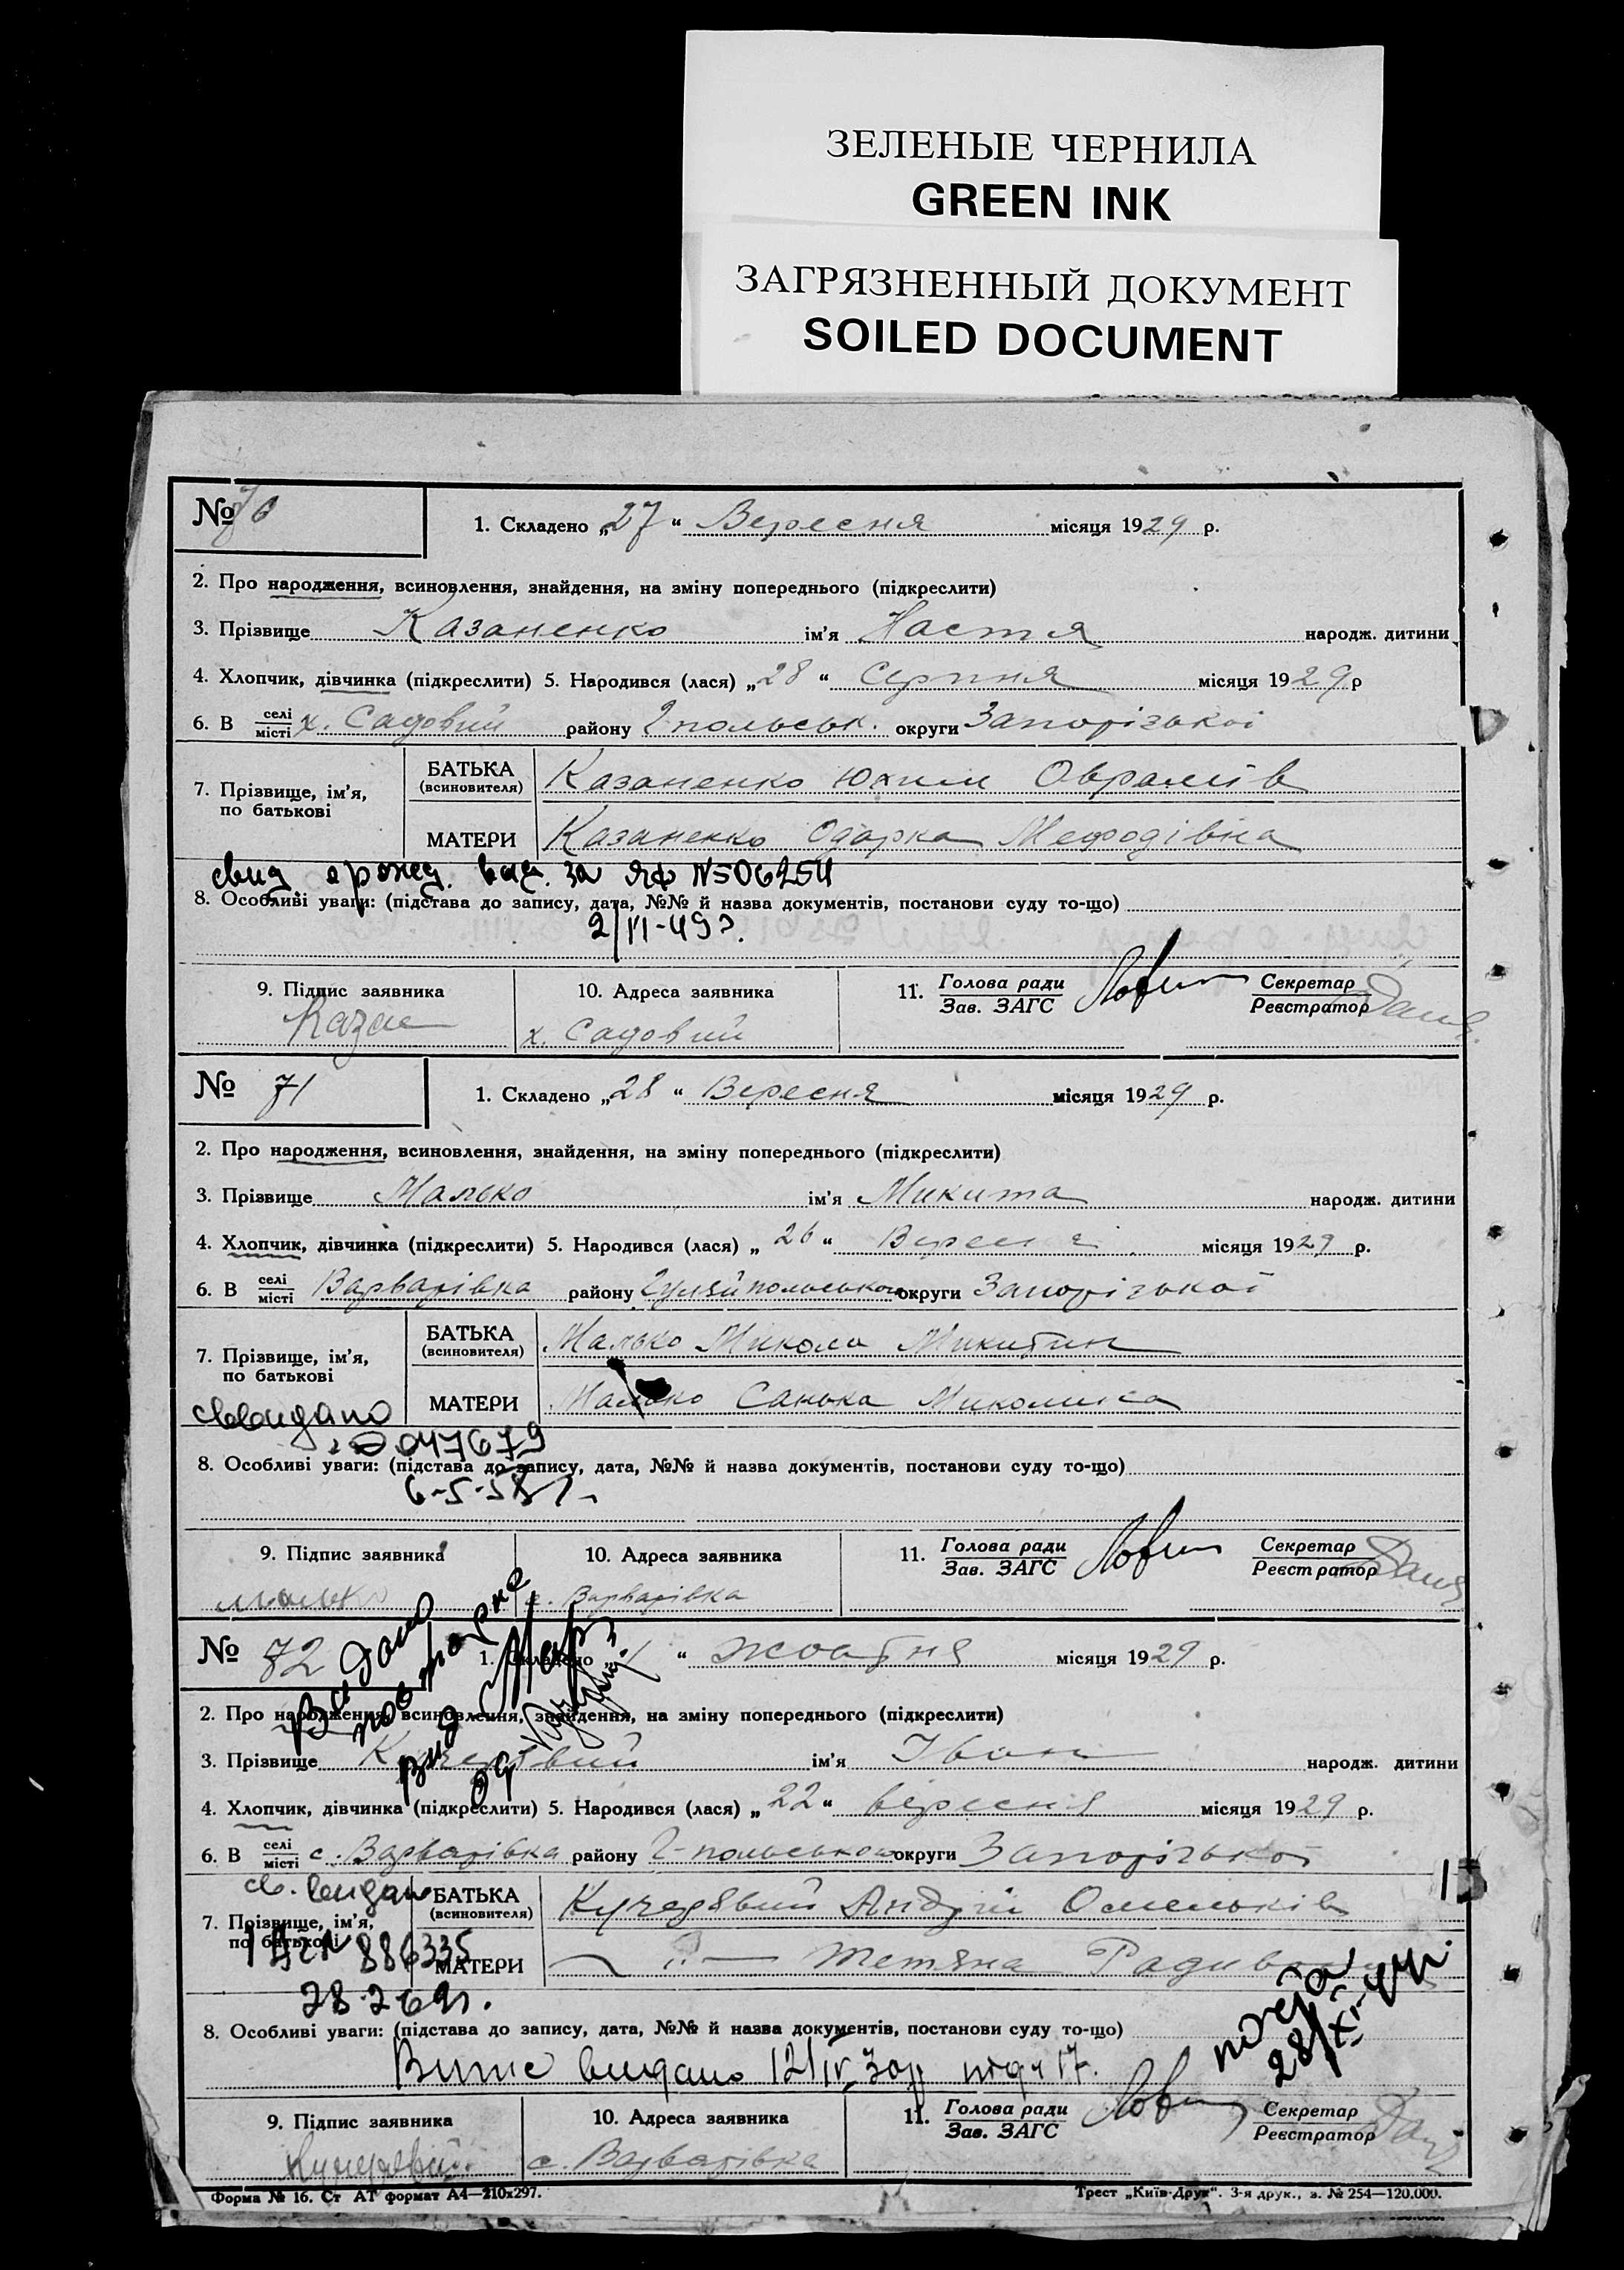 ЗЕЛЕНЫЕ ЧЕРНИЛА
GREEN INK
ЗАГРЯЗНЕННЫЙ ДОКУМЕНТ
SOILED DOCUMENT
№ 70
1. Складено „27“ Вересня місяця 1929 р.
2. Про народження, всиновлення, знайдення, на зміну попереднього (підкреслити)
3. Прізвище Казаненко ім'я Настя народж. дитини
4. Хлопчик, дівчинка (підкреслити) 5. Народився (лася) „28“ Серпня місяця 1929 р
6. В селі місті х. Садовий району Гпольськ. округи Запорізької
7. Прізвище, ім'я, по батькові
БАТЬКА (всиновителя) Казаненко Юхим Оврамів
МАТЕРИ Казаненко Одарка Мефодівна
свид. о рожд. выд. за ЯФ №
8. Особливі уваги: (підстава до запису, дата, №№ й назва документів, постанови суду то-що)
9. Підпис заявника 10. Адреса заявника 11. Голова ради Зав. ЗАГС Секретар Реєстратор
Казан х. Садовий
№ 71
1. Складено „28“ Вересня місяця 1929 р.
2. Про народження, всиновлення, знайдення, на зміну попереднього (підкреслити)
3. Прізвище Малько ім'я Микита народж. дитини
4. Хлопчик, дівчинка (підкреслити) 5. Народився (лася) „26“ Вересня місяця 1929 р.
6. В селі місті Варварівка району Гуляйпольського округи Запорізької
7. Прізвище, ім'я, по батькові
БАТЬКА (всиновителя) Малько Микола Микитин
МАТЕРИ Малько Санька Миколиівна
047679
8. Особливі уваги: (підстава до запису, дата, №№ й назва документів, постанови суду то-що)
6-5-58 г.
9. Підпис заявника 10. Адреса заявника 11. Голова ради Зав. ЗАГС Секретар Реєстратор
Малько с. Варварівка
№ 72
1. Складено „1“ Жовтня місяця 1929 р.
Видано повторне
2. Про народження, всиновлення, знайдення, на зміну попереднього (підкреслити)
3. Прізвище Кучерявий ім'я Іван народж. дитини
4. Хлопчик, дівчинка (підкреслити) 5. Народився (лася) „22“ вересня місяця 1929 р.
6. В селі місті с. Варварівка району Г-польського округи Запорізької
св. видано
7. Прізвище, ім'я, по батькові
БАТЬКА (всиновителя) Кучерявий Андрій Омельків
МАТЕРИ — " — Тетяна
886335
28.2.69г.
8. Особливі уваги: (підстава до запису, дата, №№ й назва документів, постанови суду то-що)
28/XI-44
Випис видано 12/IV
9. Підпис заявника 10. Адреса заявника 11. Голова ради Зав. ЗАГС Секретар Реєстратор
Кучерявий с. Варварівка
Форма № 16. Ст АТ формат А4—210х297.
Трест „Київ-Друк“. 3-я друк., з. № 254—120.000.